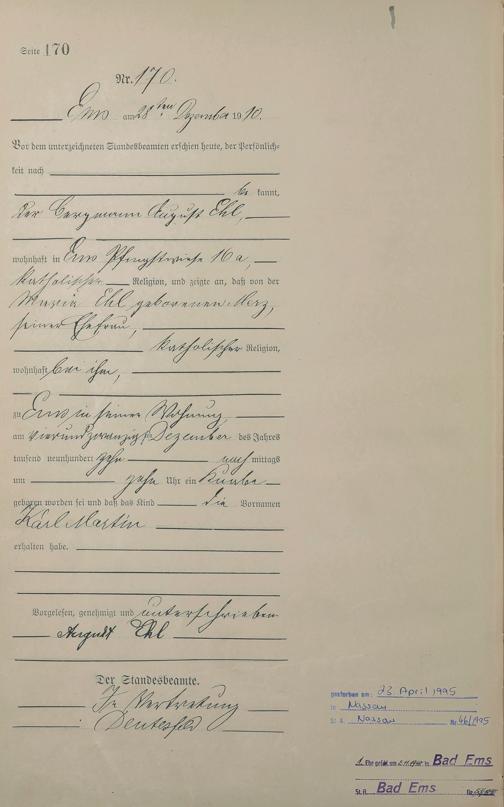 Seite 170
Nr. 170.
Ems am 28ten Dezember 1910.
Vor dem unterzeichneten Standesbeamten erschien heute, der Persönlich-
keit nach
be kannt,
der Bergmann August Ehl,
wohnhaft in Ems Pfingstwiese 16a,
katholischer Religion, und zeigte an, daß von der
Maria Ehl geborenen Merz,
seiner Ehefrau,
katholischer Religion,
wohnhaft bei ihm,
zu Ems in seiner Wohnung
am vierundzwanzigsten Dezember des Jahres
tausend neunhundert zehn nach mittags
um zehn Uhr ein Knabe
geboren worden sei und daß das Kind die Vornamen
Karl Martin
erhalten habe.
Vorgelesen, genehmigt und unterschrieben
August Ehl
Der Standesbeamte.
In Vertretung
gestorben am: 23. April 1995
in Nassau
St.A. Nassau Nr. 46/1995
1. Ehe geschl. am in Bad Ems
St.A. Bad Ems Nr.